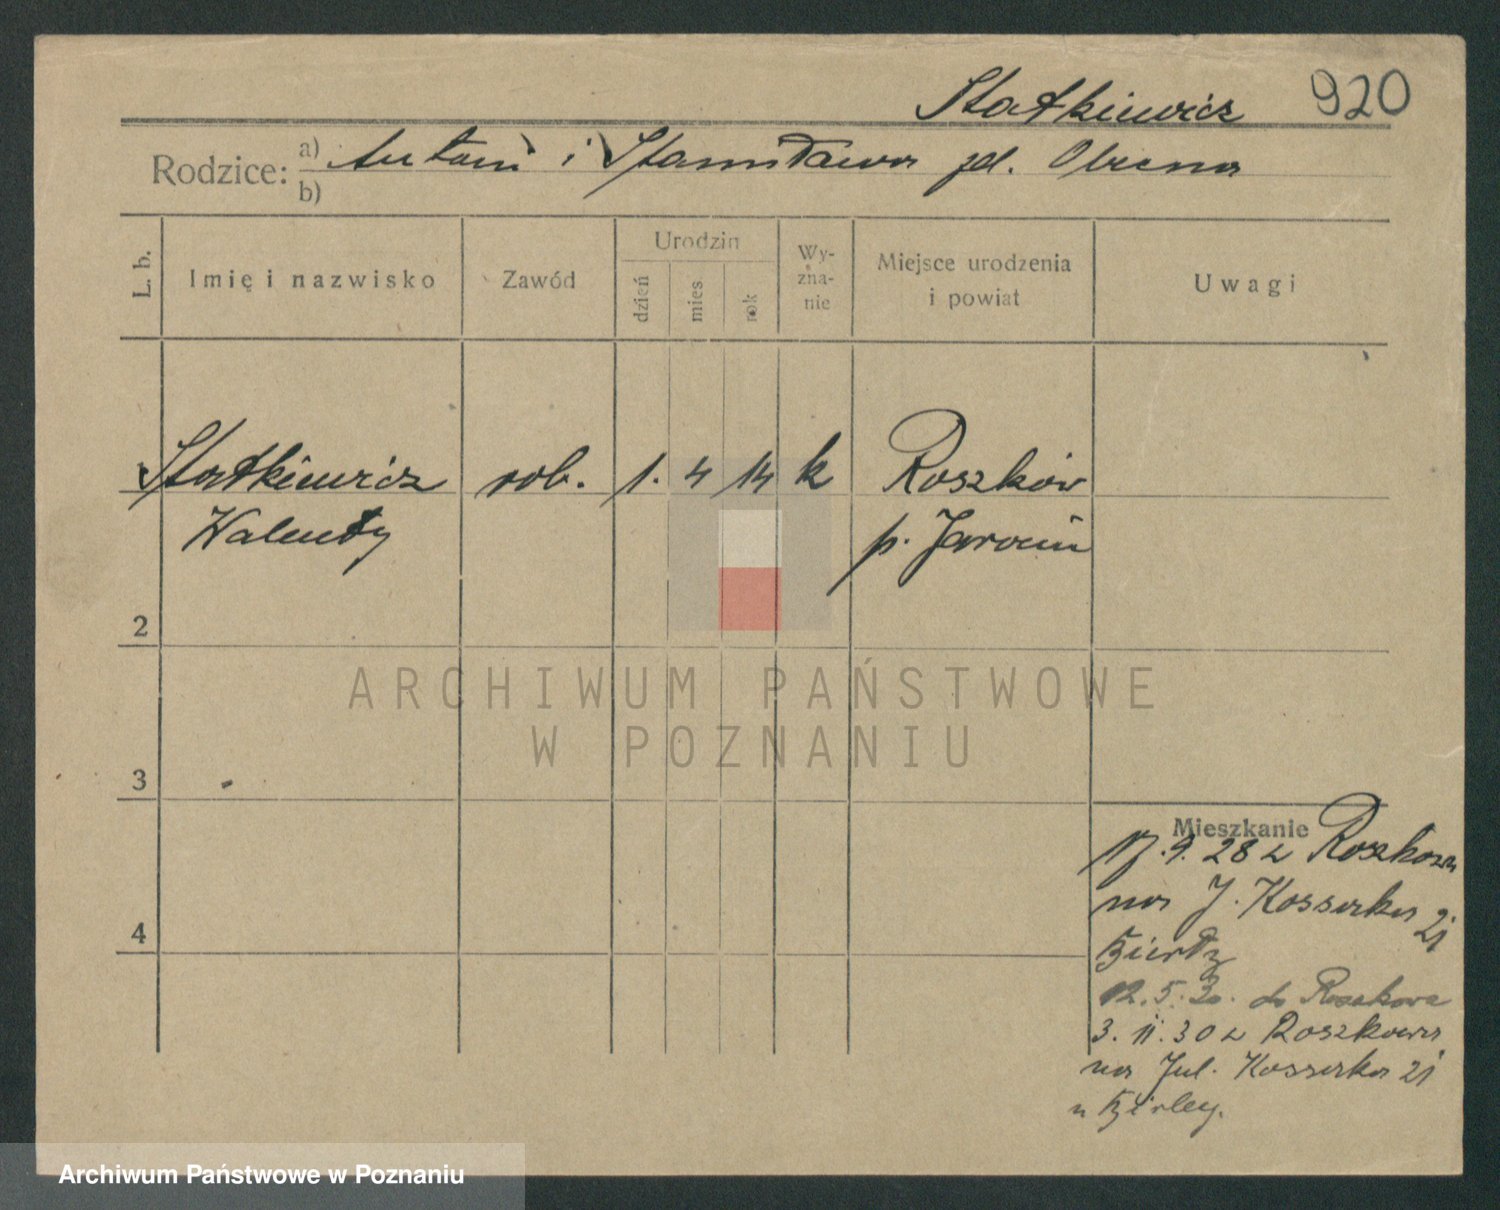 Statkiewicz 920
Rodzice: a) Antoni i Stanisława zd.
b)
L. b. Imię i nazwisko Zawód Urodzin dzień mies rok Wy-zna-nie Miejsce urodzenia i powiat Uwagi
Statkiewicz rob. 1. 4 14 k Roszków
Walenty p. Jarocin
2
ARCHIWUM PAŃSTWOWE
W POZNANIU
3
Mieszkanie
17.9.28 z Roszkowa
na J. Kossaka 21
4
12.5.30. do Roszkowa
3.11.30 z Roszkowa
na Jul. Kossaka 21
u
Archiwum Państwowe w Poznaniu